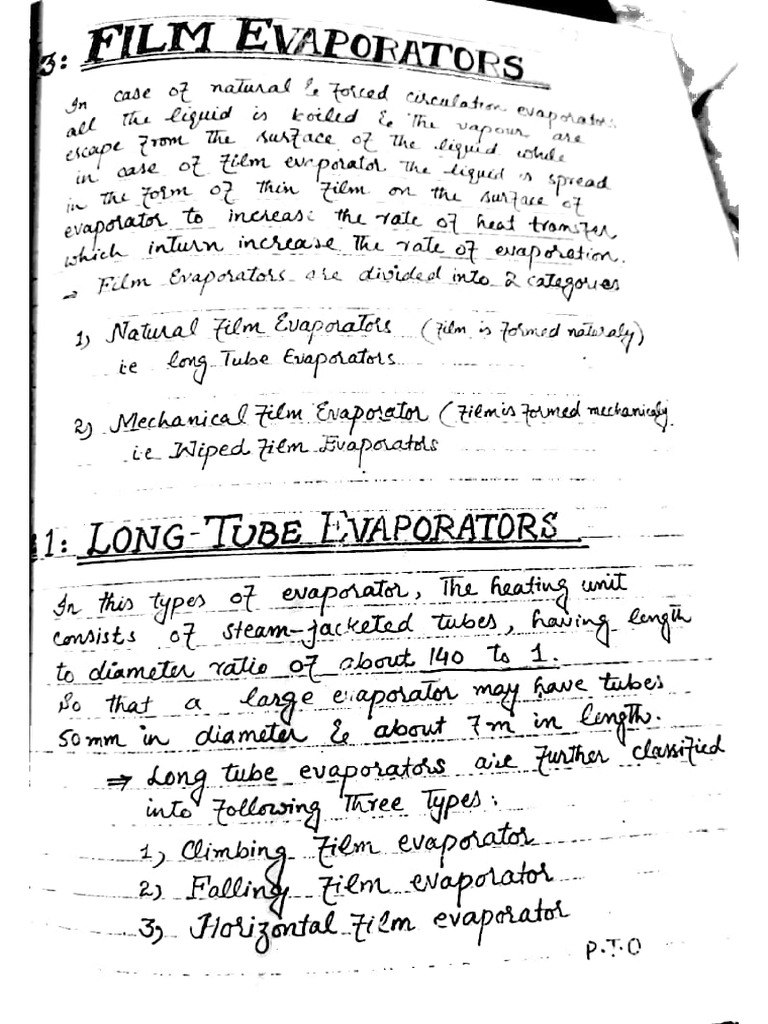 3: FILM EVAPORATORS
In case of natural & forced circulation evaporators
all the liquid is boiled & the vapour are
escape from the surface of the liquid while
in case of film evaporator the liquid is spread
in the form of thin film on the surface of
evaporator to increase the rate of heat transfer
which inturn increase the rate of evaporation.
→ Film Evaporators are divided into 2 categories
1) Natural Film Evaporators (Film is formed naturaly)
i.e long Tube Evaporators
2) Mechanical Film Evaporator (Film is formed mechanicaly
i.e Wiped Film Evaporators
1: LONG-TUBE EVAPORATORS
In this types of evaporator, The heating unit
consists of steam-jacketed tubes, having length
to diameter ratio of about 140 to 1.
So that a large evaporator may have tubes
50mm in diameter & about 7m in length.
⇒ Long tube evaporators are further classified
into following Three Types:
1) Climbing Film evaporator
2) Falling Film evaporator
3) Horizontal Film evaporator
P.T.O